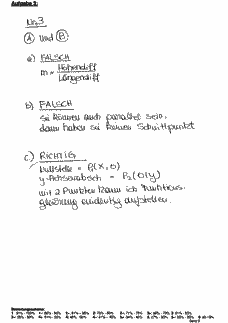 Aufgabe 3:
Nr. 3
Ⓐ und Ⓑ
a) FALSCH
m = Höhendiff / Längendiff
b) FALSCH
sie können auch parallel sein,
dann haben sie keinen Schnittpunkt
c) RICHTIG
Nullstelle = P₁(x, 0)
y-Achsenabsch = P₂(0|y)
mit 2 Punkten kann ich Funktions-
gleichung eindeutig aufstellen.